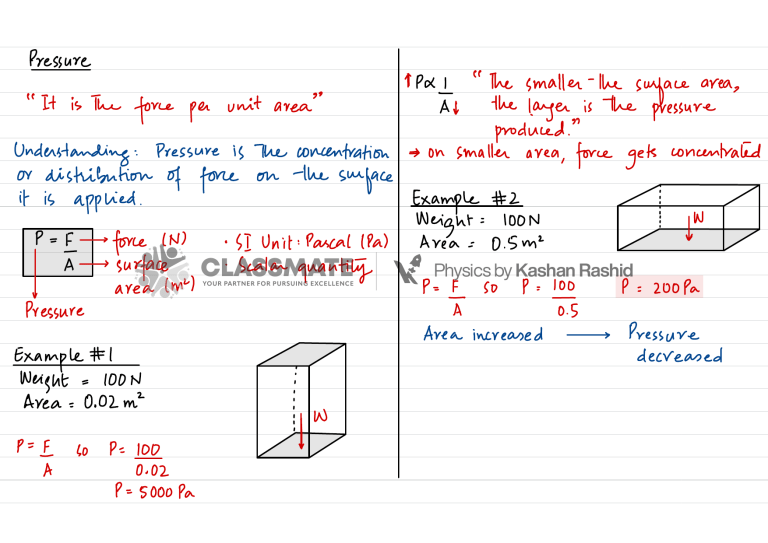 Pressure
"It is the force per unit area"
Understanding: Pressure is the concentration
or distribution of force on the surface
it is applied.
P = F/A
→ force (N)
→ surface
area (m²)
Pressure
• SI Unit: Pascal (Pa)
• Scalar quantity
CLASSMATE
YOUR PARTNER FOR PURSUING EXCELLENCE
Example #1
Weight = 100N
Area = 0.02 m²
W
P = F/A so P = 100/0.02
P = 5000 Pa
↑P∝ 1/A↓
"The smaller the surface area,
the larger is the pressure
produced."
→ on smaller area, force gets concentrated
Example #2
Weight = 100N
Area = 0.5m²
W
Physics by Kashan Rashid
P = F/A so P = 100/0.5 P = 200Pa
Area increased → Pressure
decreased